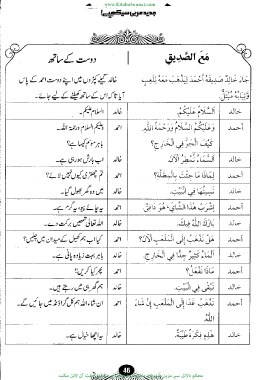 www.KitaboSunnat.com
جدید عربی سیکھیے!
مَعَ الصَّدِيقِ
دوست کے ساتھ
جَاءَ خَالِدٌ صَدِيقَهُ أَحْمَدَ لِيَذْهَبَ مَعَهُ لِلَّعِبِ
وَثِيَابُهُ مُبْتَلَّ
خالد گیلے کپڑوں میں اپنے دوست احمد کے پاس
آیا تا کہ اس کے ساتھ کھیلنے کے لیے جائے۔
خالد اَلسَّلَامُ عَلَيْكُمْ. خالد السلام علیکم۔
أحمد وَعَلَيْكُمُ السَّلَامُ وَرَحْمَةُ اللّٰهِ. احمد وعلیکم السلام ورحمۃ اللہ۔
كَيْفَ الْجَوُّ فِي الْخَارِجِ؟ باہر موسم کیسا ہے؟
خالد اَلسَّمَاءُ تُمْطِرُ الْآنَ. خالد اب بارش ہو رہی ہے۔
أحمد لِمَاذَا مَا جِئْتَ بِالْمِظَلَّةِ؟ احمد تم چھتری کیوں نہیں لائے؟
خالد نَسِيتُهَا فِي الْبَيْتِ. خالد میں وہ گھر بھول گیا۔
أحمد اِشْرَبْ هٰذَا الشَّايَ، هُوَ دَافِئٌ. احمد یہ چائے پیو، یہ گرم ہے۔
خالد بَارَكَ اللّٰهُ فِيكَ. خالد اللہ تعالیٰ تمھیں برکت دے۔
أحمد هَلْ نَذْهَبُ إِلَى الْمَلْعَبِ الْآنَ؟ احمد کیا اب ہم کھیل کے میدان میں چلیں؟
خالد اَلْمَاءُ كَثِيرٌ جِدًّا فِي الْخَارِجِ. خالد باہر بہت زیادہ پانی ہے۔
أحمد مَاذَا نَفْعَلُ؟ احمد پھر کیا کریں؟
خالد نَبْقٰى فِي الْبَيْتِ. خالد ہم گھر ہی میں رہتے ہیں۔
أحمد نَذْهَبُ غَدًا إِلَى الْمَلْعَبِ إِنْ شَاءَ
اللّٰهُ احمد ان شاء اللہ ہم کل گراؤنڈ میں جائیں گے۔
خالد هٰذِهِ فِكْرَةٌ طَيِّبَةٌ. خالد یہ اچھا خیال ہے۔
46